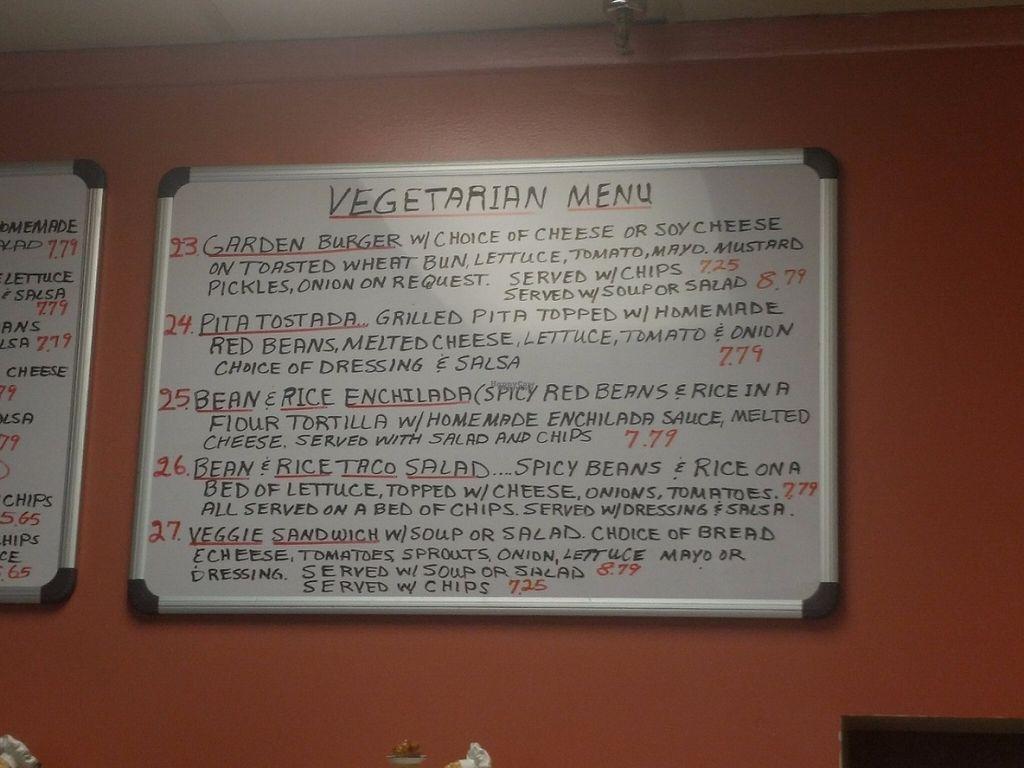 VEGETARIAN MENU
23. GARDEN BURGER W/ CHOICE OF CHEESE OR SOY CHEESE
ON TOASTED WHEAT BUN, LETTUCE, TOMATO, MAYO. MUSTARD
PICKLES, ONION ON REQUEST. SERVED W/ CHIPS 7.25
SERVED W/ SOUP OR SALAD 8.79
24. PITA TOSTADA... GRILLED PITA TOPPED W/ HOMEMADE
RED BEANS, MELTED CHEESE, LETTUCE, TOMATO & ONION
CHOICE OF DRESSING & SALSA 7.79
25. BEAN & RICE ENCHILADA (SPICY RED BEANS & RICE IN A
FLOUR TORTILLA W/ HOMEMADE ENCHILADA SAUCE, MELTED
CHEESE. SERVED WITH SALAD AND CHIPS 7.79
26. BEAN & RICE TACO SALAD.... SPICY BEANS & RICE ON A
BED OF LETTUCE, TOPPED W/ CHEESE, ONIONS, TOMATOES. 7.79
ALL SERVED ON A BED OF CHIPS. SERVED W/ DRESSING & SALSA.
27. VEGGIE SANDWICH W/ SOUP OR SALAD. CHOICE OF BREAD
& CHEESE, TOMATOES, SPROUTS, ONION, LETTUCE MAYO OR
DRESSING. SERVED W/ SOUP OR SALAD 8.79
SERVED W/ CHIPS 7.25
OMEMADE
7.79
LETTUCE
& SALSA
7.79
ANS
LSA 7.79
CHEESE
79
LSA
79
CHIPS
5.65
HIPS
CE
.65